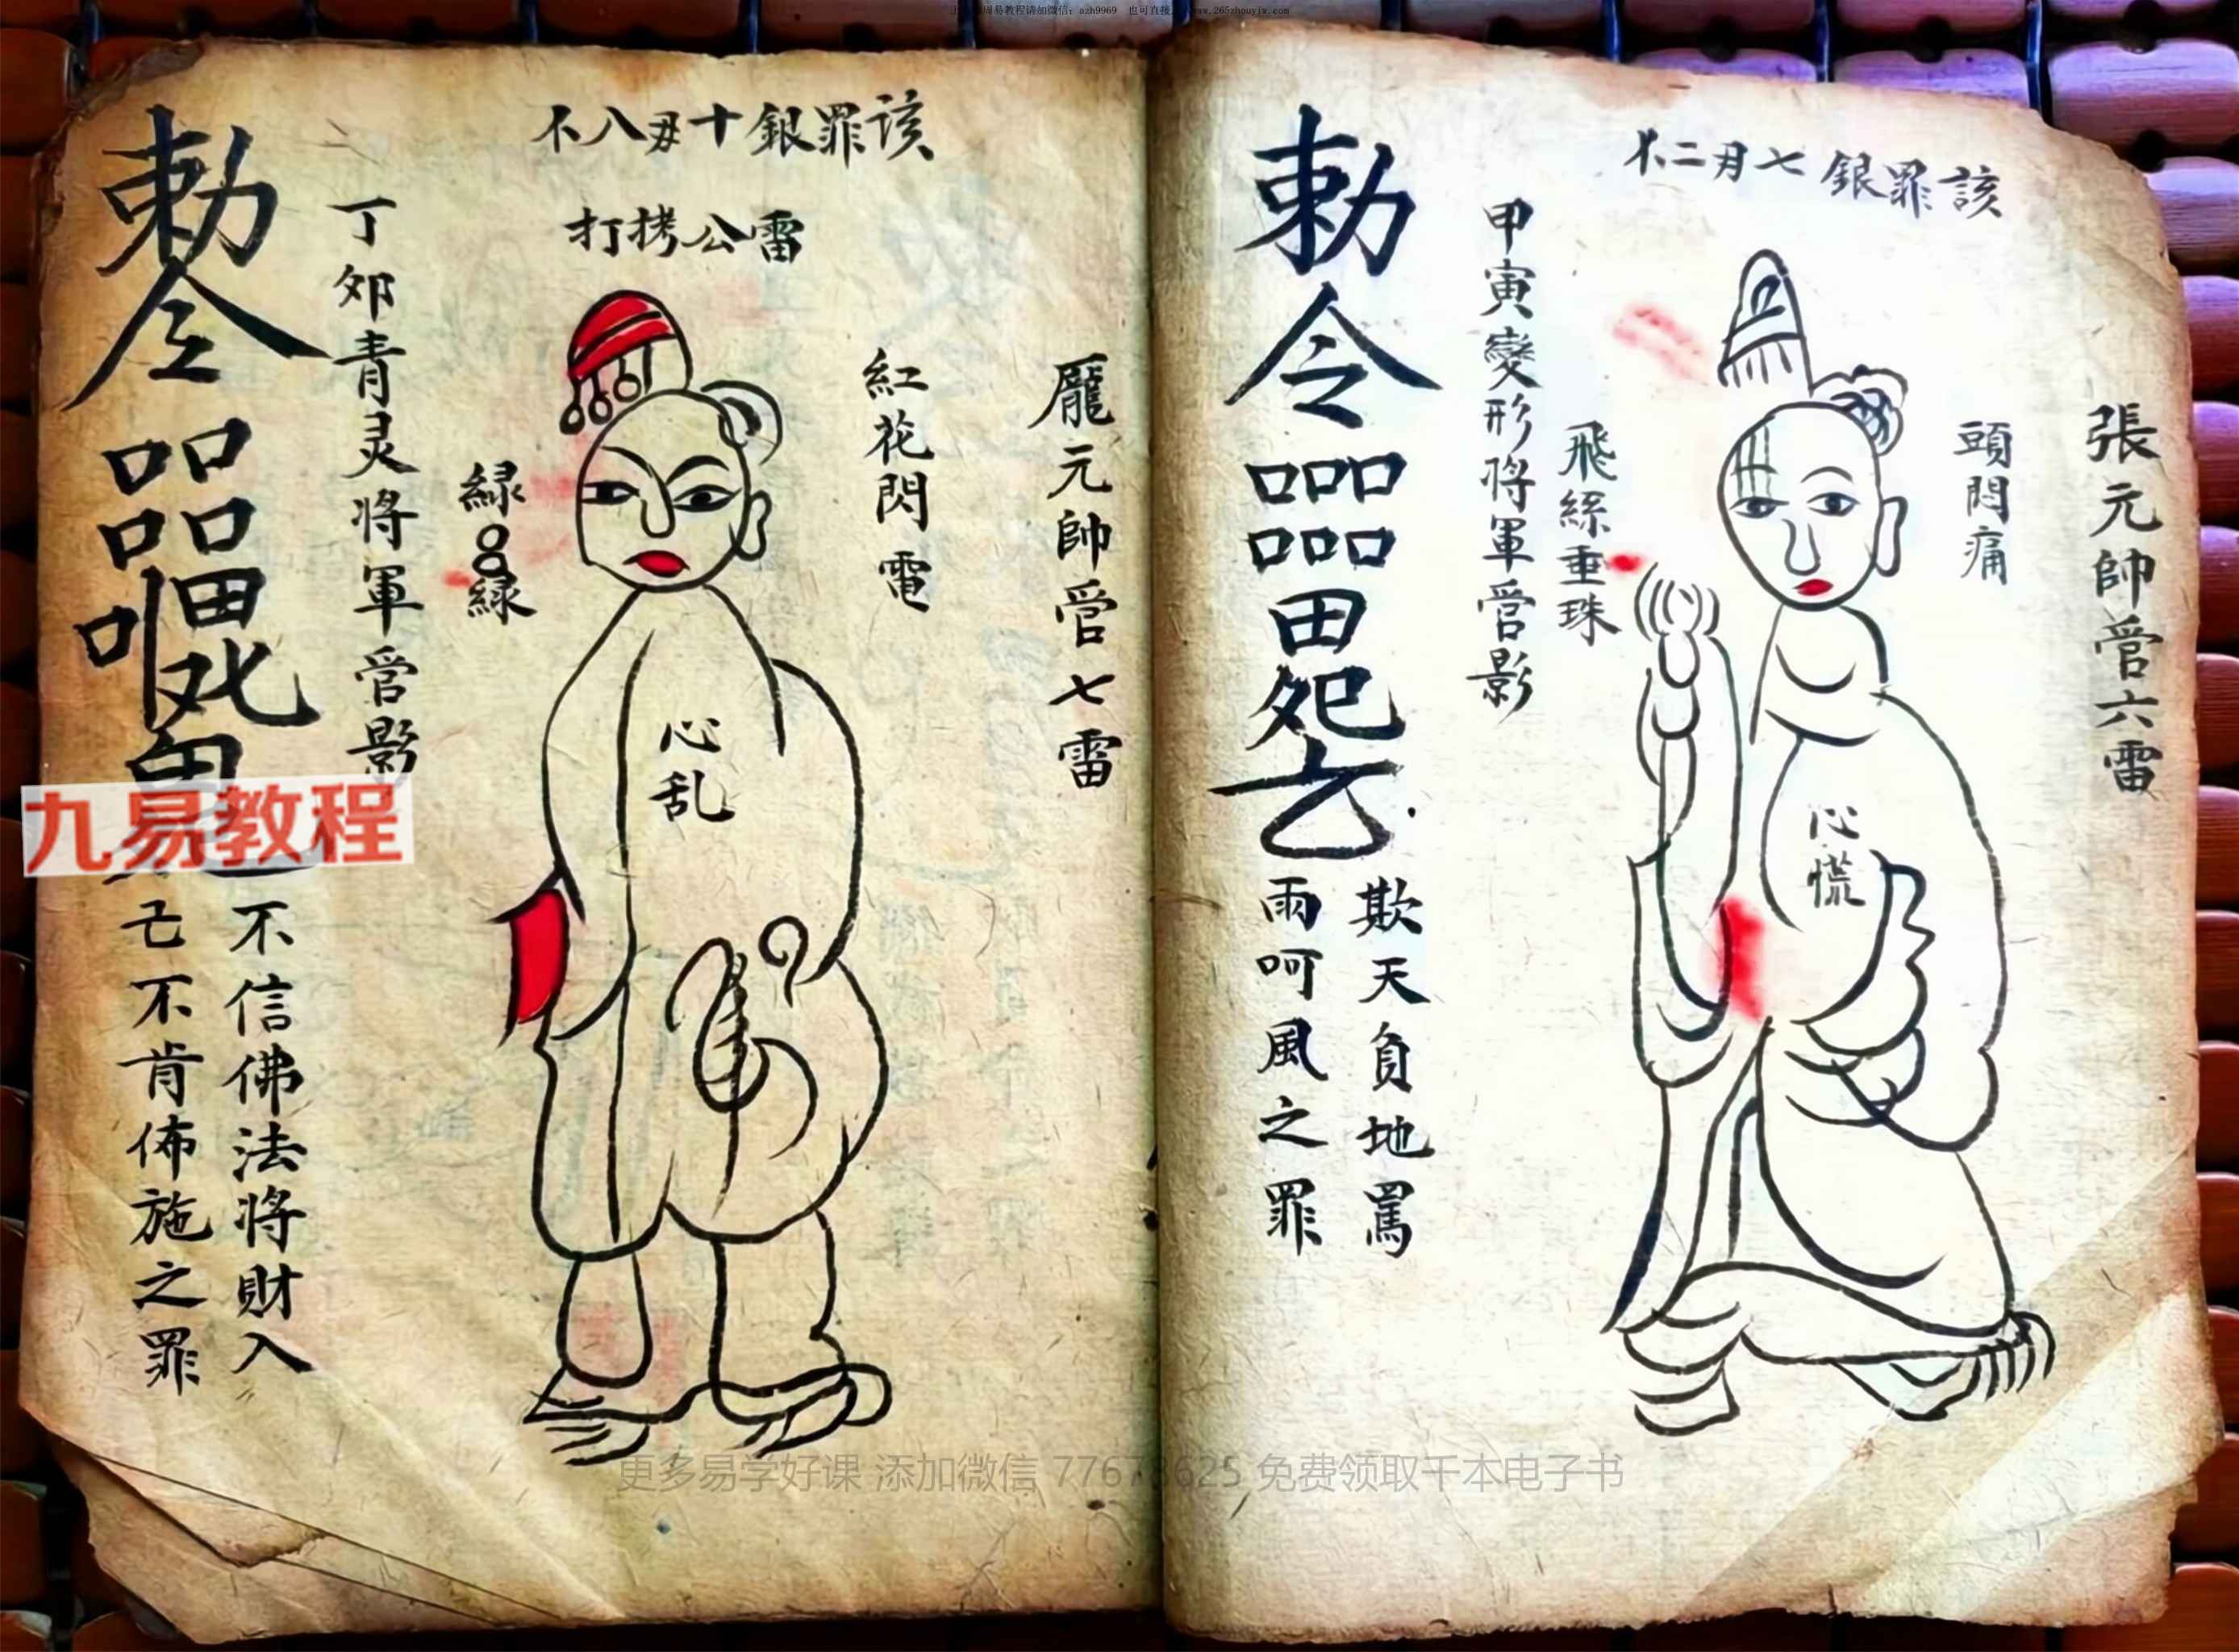 周易教程请加微信：azh9969 也可直接
www.265zhouyiw.com
該罪銀七月二不
張元帥管六雷
頭悶痛
心慌
飛絲垂珠
甲寅變形将軍管影
勅令
欺天負地罵
雨呵風之罪
該罪銀十毋八不
雷公拷打
龐元帥管七雷
紅花閃電
心乱
緑
緑
丁夘青灵将軍管影
勅令
不信佛法将財入
己不肯佈施之罪
九易教程
更多易学好课 添加微信 免费领取千本电子书